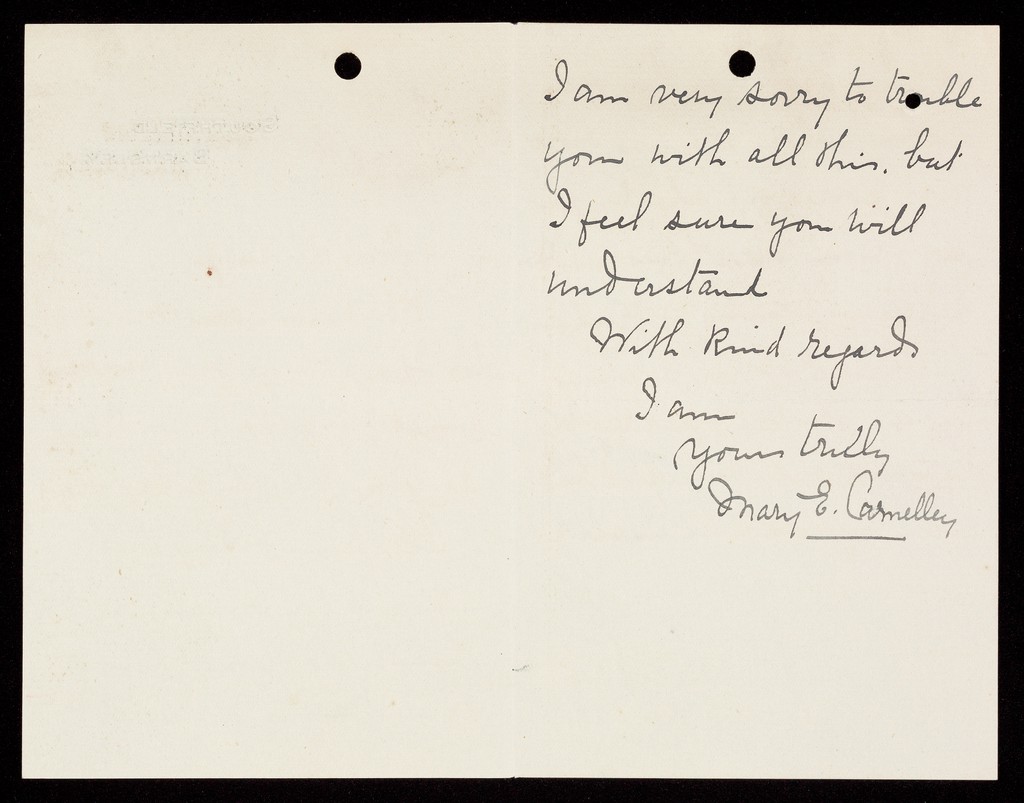 I am very sorry to trouble
you with all this. but
I feel sure you will
understand
With kind regards
I am
yours truly
Mary E. Carnelley